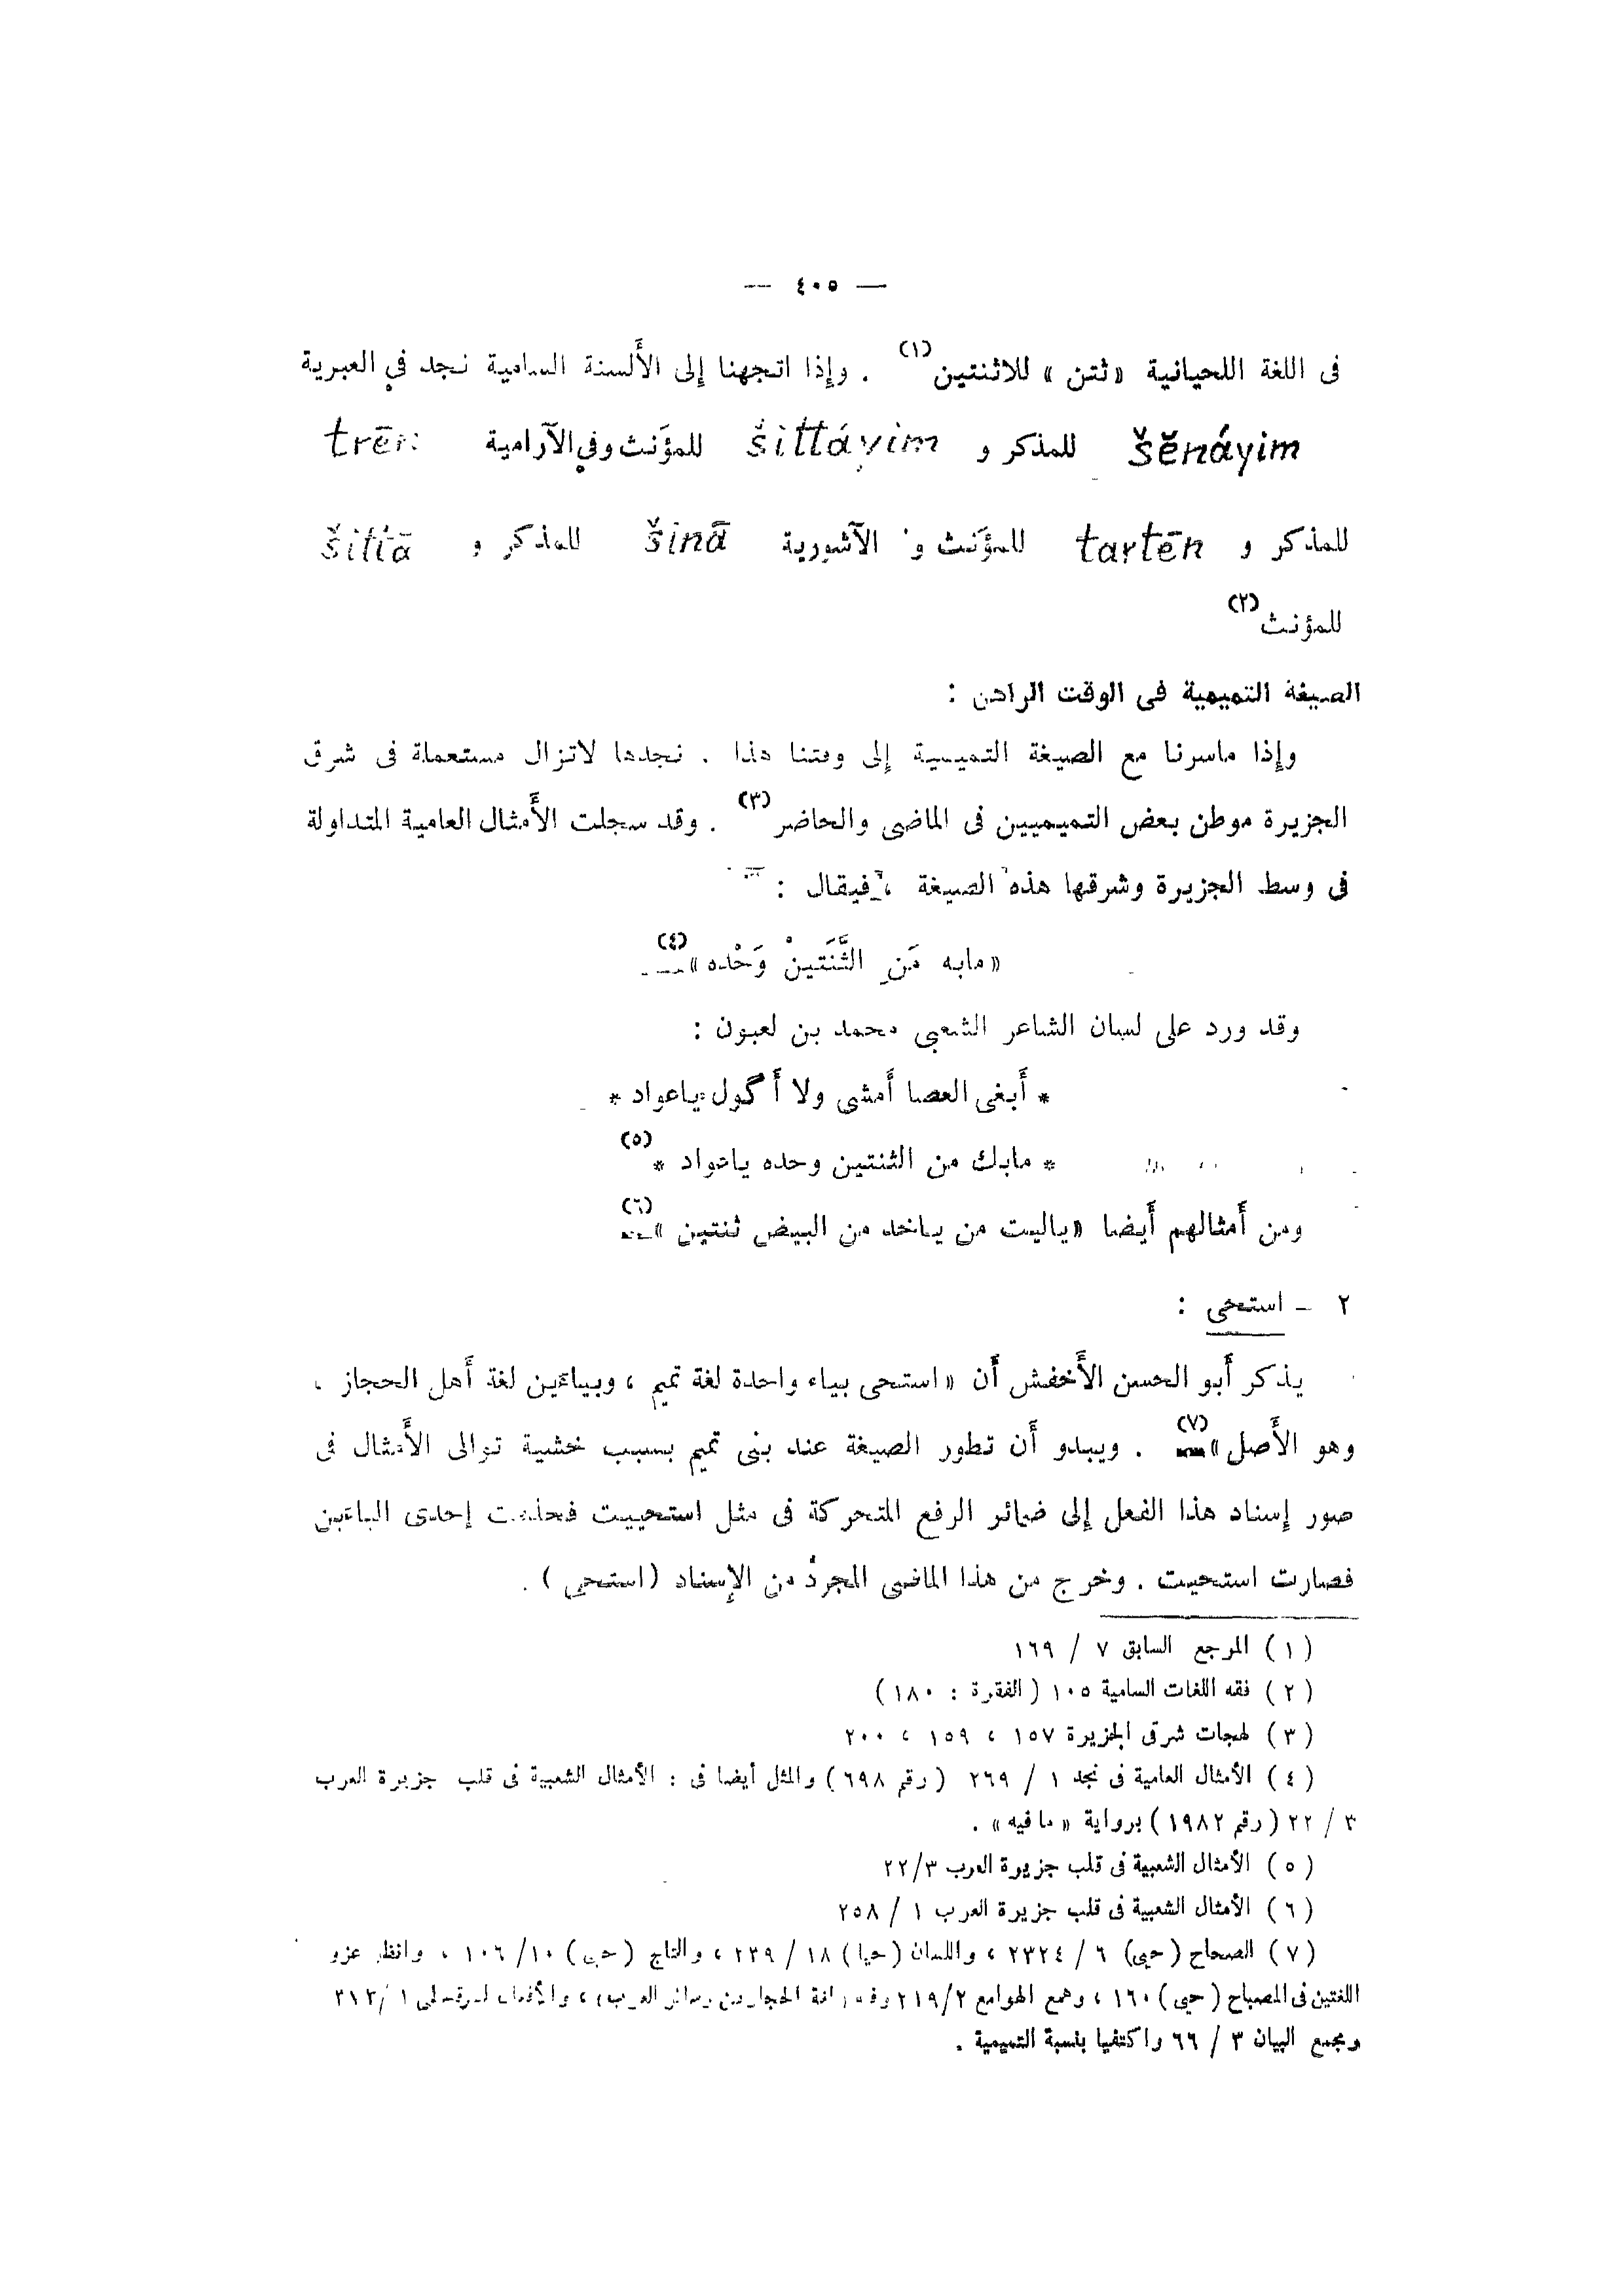 — ٤٠٥ —
فى اللغة اللحيانية «ثتن» للاثنتين(١) . وإذا اتجهنا إلى الألسنة السامية نجد في العبرية
šĕnáyim للمذكر و šittáyim للمؤنث وفي الآرامية trēn
للمذكر و tartēn للمؤنث و الآشورية šinā للمذكر و šittā
للمؤنث(٢)
الصيغة التميمية فى الوقت الراهن :
وإذا ماسرنا مع الصيغة التميمية إلى وقتنا هذا . نجدها لاتزال مستعملة فى شرق
الجزيرة موطن بعض التميميين فى الماضى والحاضر(٣) . وقد سجلت الأمثال العامية المتداولة
فى وسط الجزيرة وشرقها هذه الصيغة ، فيقال :
«مابه مَن الثَّنَتينْ وَحْده»(٤)
وقد ورد على لسان الشاعر الشعبى محمد بن لعبون :
* أبغى العصا أمشى ولا أگول ياعواد *
* مابك من الثنتين وحده ياعواد *(٥)
ومن أمثالهم أيضا «ياليت من ياخد من البيض ثنتين»(٦)
٢ - استحى :
يذكر أبو الحسن الأخفش أن «استحى بياء واحدة لغة تميم ، وبياءين لغة أهل الحجاز ،
وهو الأصل»(٧) . ويبدو أن تطور الصيغة عند بنى تميم بسبب خشية توالى الأمثال فى
صور إسناد هذا الفعل إلى ضمائر الرفع المتحركة فى مثل استحييت فحذفت إحدى الياءين
فصارت استحيت . وخرج من هذا الماضى المجرد من الإسناد (استحى) .
(١) المرجع السابق ٧ / ١٦٩
(٢) فقه اللغات السامية ١٠٥ (الفقرة : ١٨٠)
(٣) لهجات شرقى الجزيرة ١٥٧ ، ١٥٩ ، ٢٠٠
(٤) الأمثال العامية فى نجد ١ / ٢٦٩ (رقم ٦٩٨) والمثل أيضا فى : الأمثال الشعبية فى قلب جزيرة العرب
٣ / ٢٢ (رقم ١٩٨٢) برواية «مافيه» .
(٥) الأمثال الشعبية فى قلب جزيرة العرب ٢٢/٣
(٦) الأمثال الشعبية فى قلب جزيرة العرب ١ / ٢٥٨
(٧) الصحاح (حيى) ٦ / ٢٣٢٤ ، واللسان (حيا) ١٨ / ٢٣٩ ، والتاج (حيى) ١٠ / ١٠٦ ، وانظر عزو
اللغتين فى المصباح (حيى) ١٦٠ ، وهمع الهوامع ٢١٩/٢ العرب» ، والأفعال للسرقسطى ١ / ٣١٣
ومجمع البيان ٣ / ٦٦ واكتفيا بنسبة التميمية .